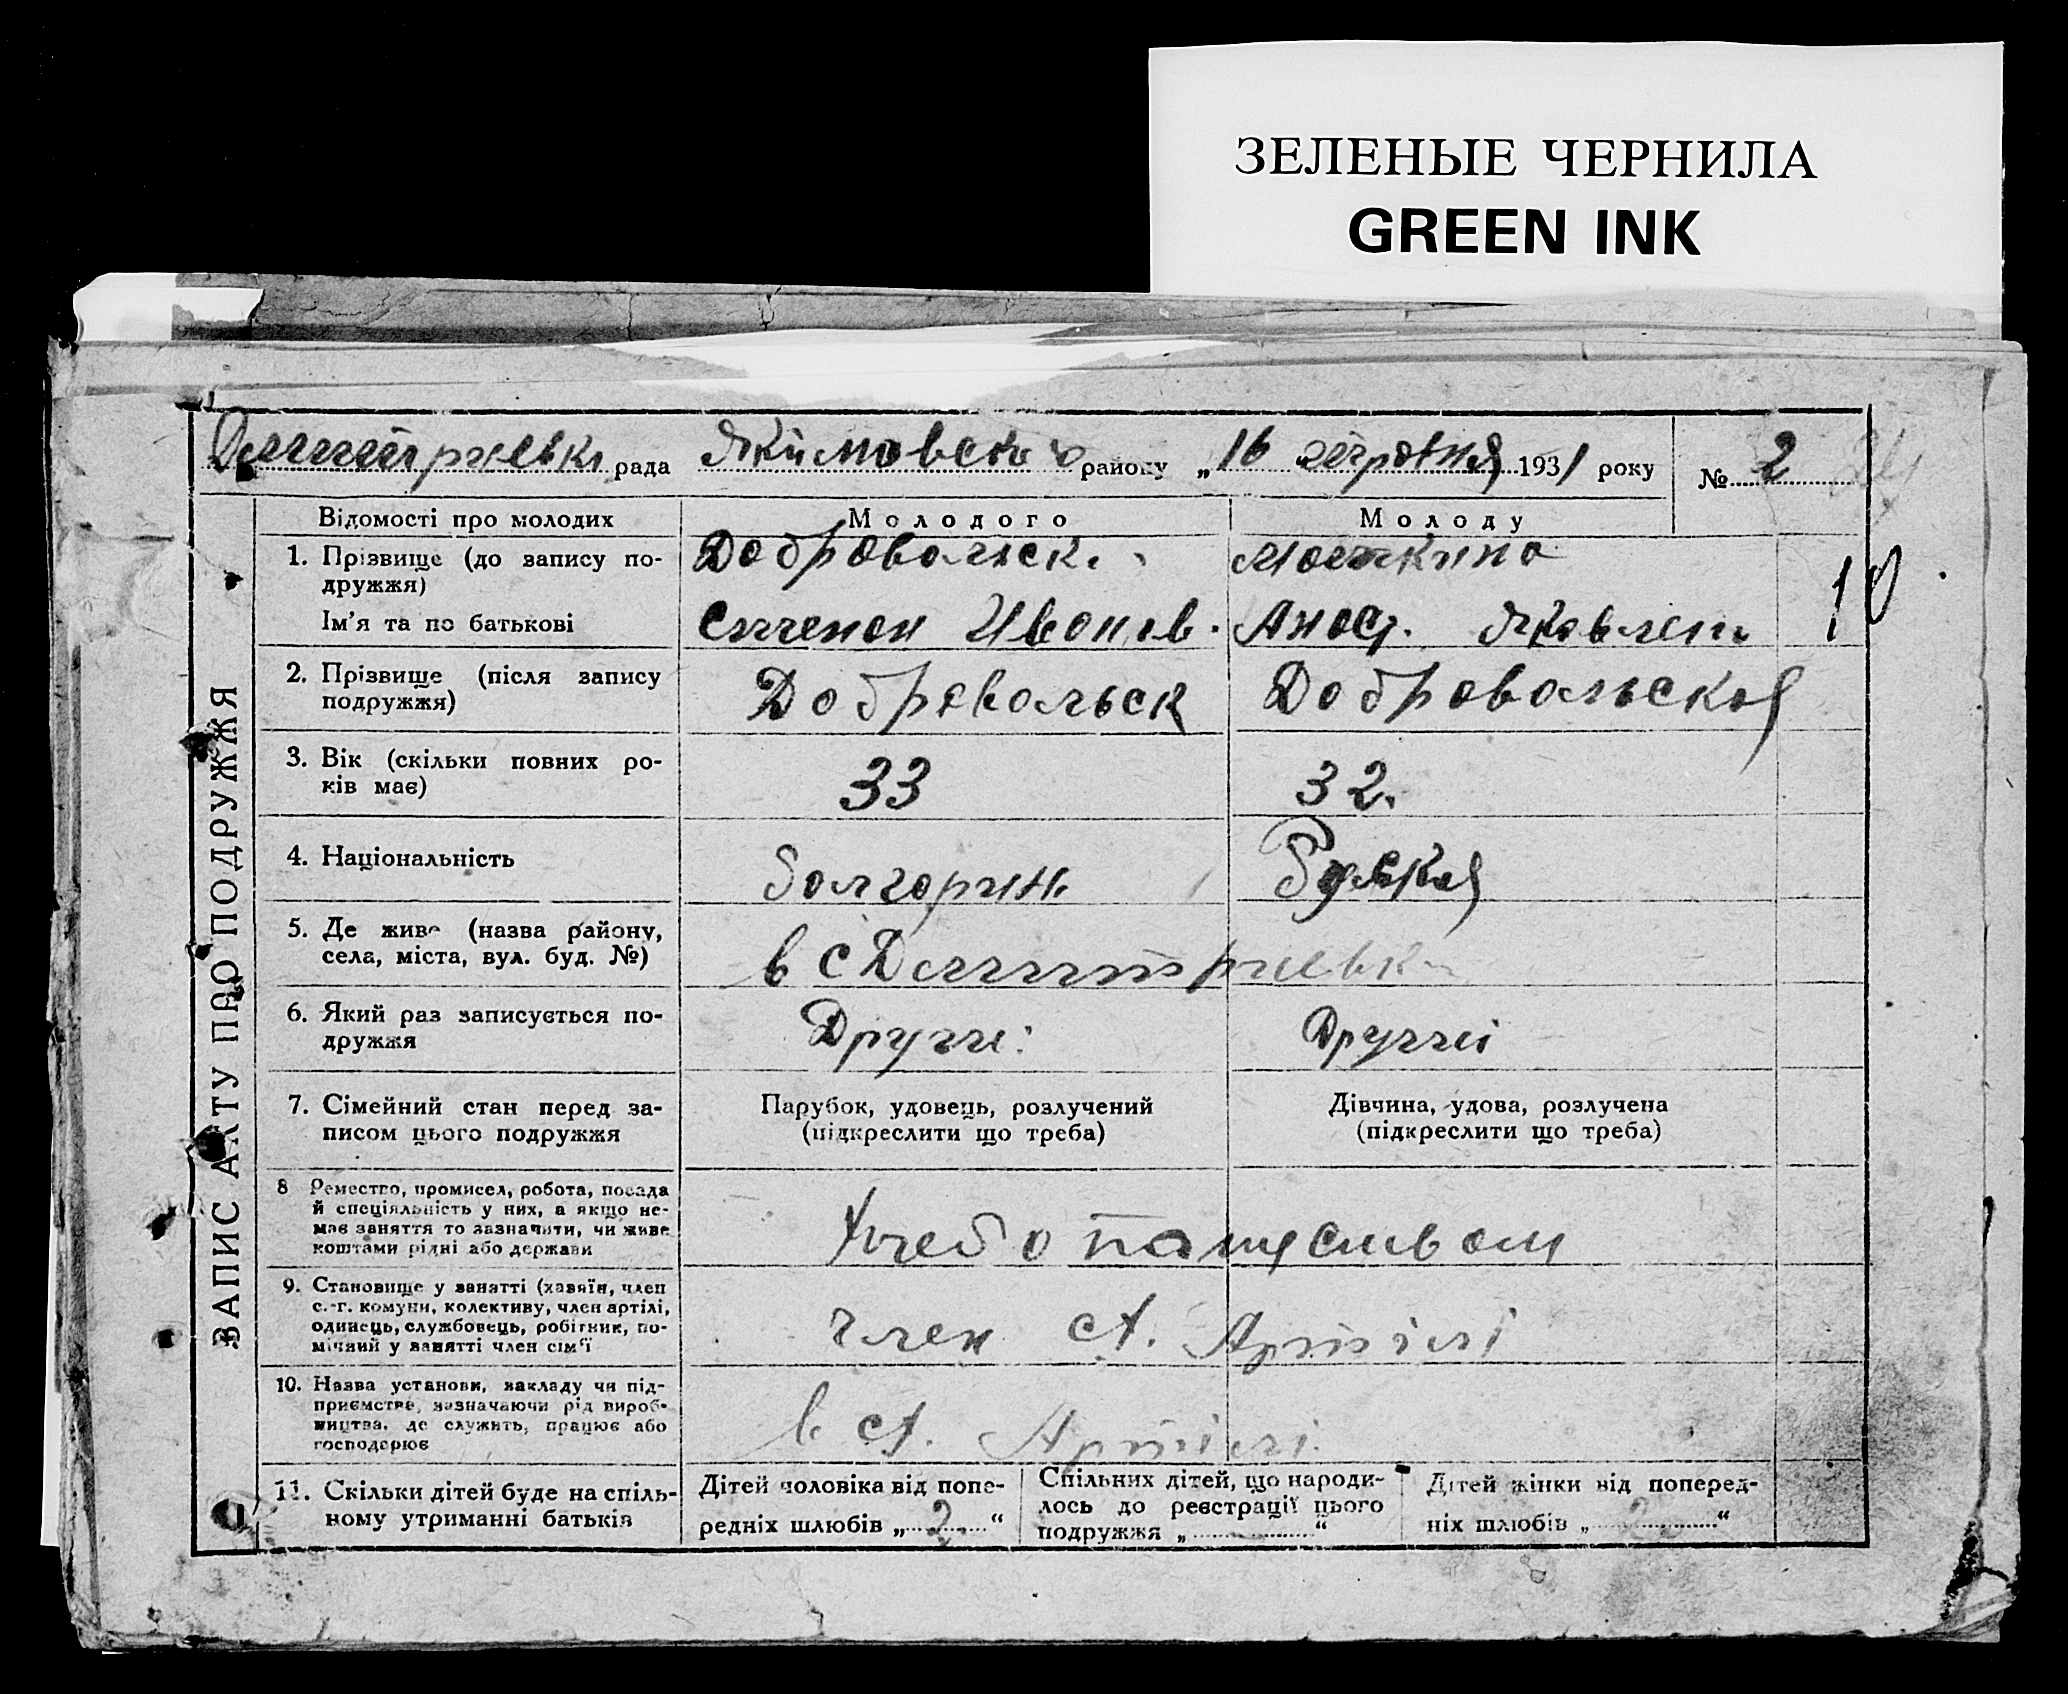 ЗЕЛЕНЫЕ ЧЕРНИЛА
GREEN INK
рада району „16 1931 року № 2
ЗАПИС АКТУ ПРО ПОДРУЖЖЯ
Відомості про молодих Молодого Молоду
1. Прізвище (до запису по-
дружжя)
Добровольск.
Ім'я та по батькові
Семенон Иванов. Анаст. Яковлен
2. Прізвище (після запису
подружжя)
Добровольск Добровольская
3. Вік (скільки повних ро-
ків має)
33 32.
4. Національність
болгорин Руская
5. Де живе (назва району,
села, міста, вул. буд. №)
в с Дмитриевк
6. Який раз записується по-
дружжя
Другі Другі
7. Сімейний стан перед за-
писом цього подружжя
Парубок, удовець, розлучений
(підкреслити що треба)
Дівчина, удова, розлучена
(підкреслити що треба)
8 Ремество, промисел, робота, посада
й спеціяльність у них, а якщо не-
має заняття то зазначити, чи живе
коштами рідні або держави
9. Становище у занятті (хазяїн, член
с.-г. комуни, колективу, член артілі,
одинець, службовець, робітник, по-
мічний у занятті член сім'ї
член Артілі
10. Назва установи, закладу чи під-
приємства, зазначаючи рід вироб-
ництва, де служить, працює або
господарює
в Артілі
11. Скільки дітей буде на спіль-
ному утриманні батьків
Дітей чоловіка від попе-
редніх шлюбів „ 2 “
Спільних дітей, що народи-
лось до реєстрації цього
подружжя „ “
Дітей жінки від поперед-
ніх шлюбів „ 2 “
10